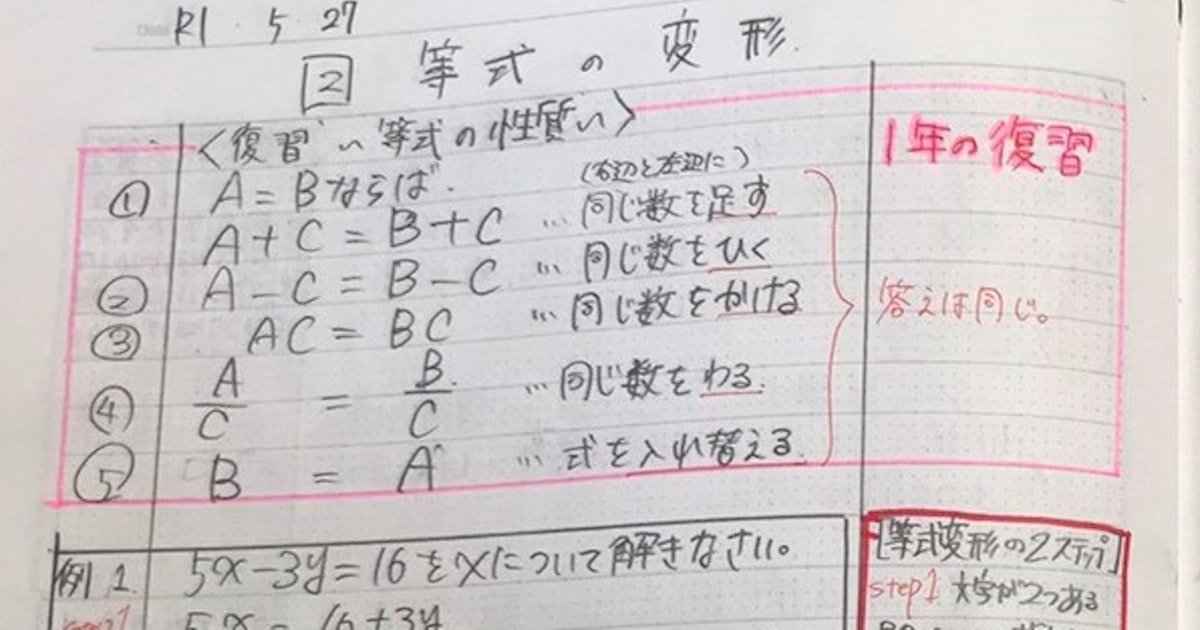 R1 . 5 . 27
2 等式の変形.
〈復習 〜 等式の性質〜〉
1年の復習
① A = B ならば.
(右辺と左辺に)
A + C = B + C … 同じ数を足す
② A − C = B − C … 同じ数をひく
③ AC = BC … 同じ数をかける
答えは同じ。
④ A/C = B/C … 同じ数をわる.
⑤ B = A … 式を入れ替える.
例1. 5x−3y=16をxについて解きなさい。
5x = 16+3y
[等式変形の2ステップ]
step1 文字が2つある